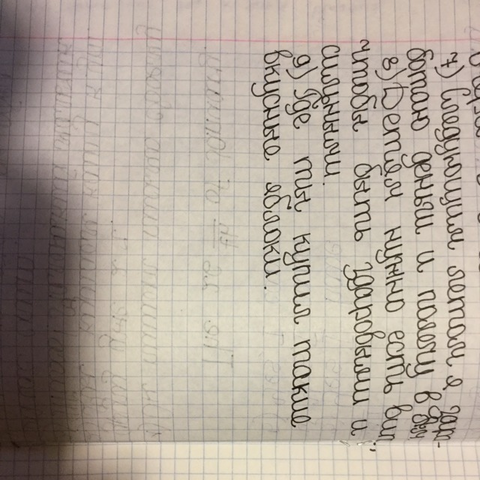 7) Следующим летом я зар-
ботаю деньги и полячу в
8) Детям нужно есть вит.,
чтобы быть здаровыми и
сильными.
9) Где ты купил такие
вкусные яблоки.